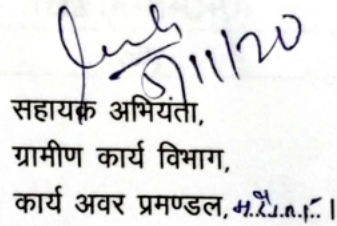 5/11/20
सहायक अभियंता,
ग्रामीण कार्य विभाग,
कार्य अवर प्रमण्डल,